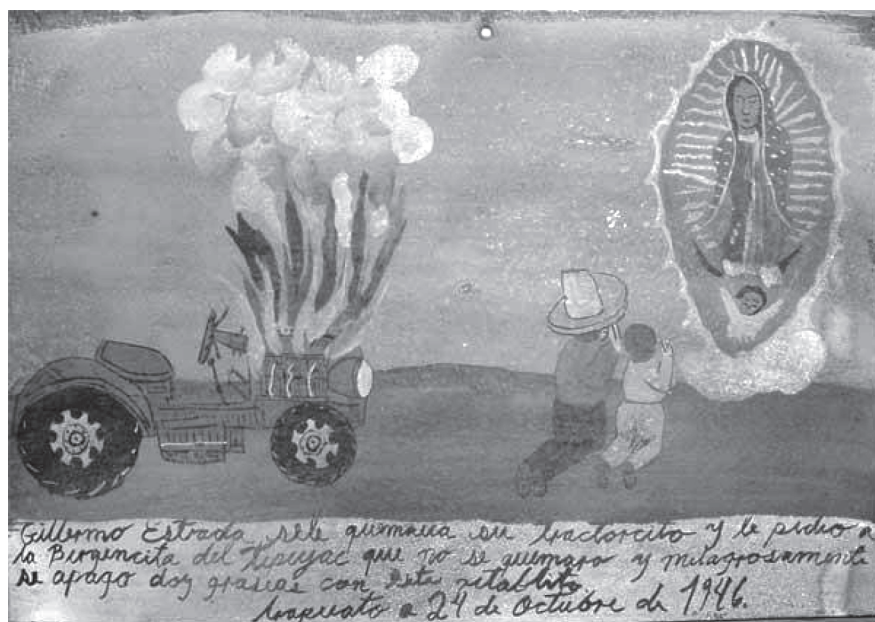 Gillermo Estrada sele quemaua su tractorcito y le pidio a
la Birgencita del Tepeyac que no se quemara y milagrosamente
se apago doy grasias con esta retablito.
Irapuato a 24 de Octubre de 1946.